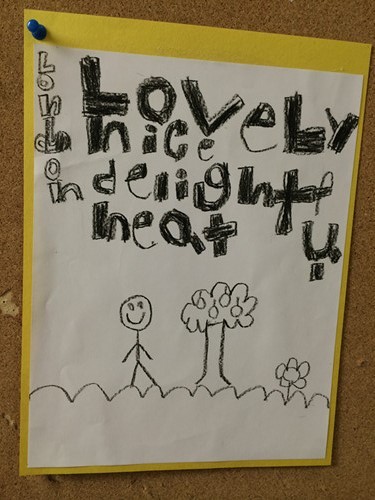 London
Lovely
nice
delightful
neat